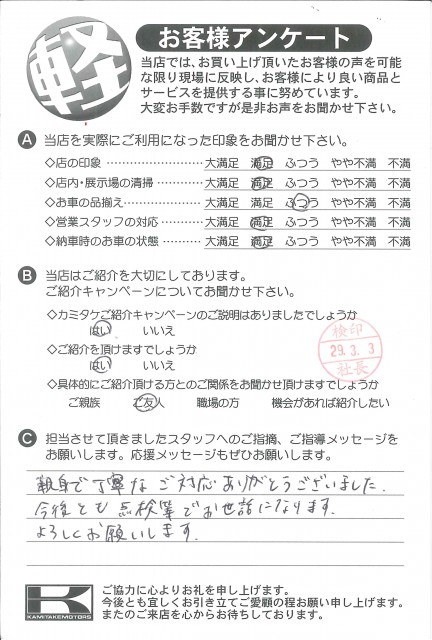 軽
お客様アンケート
当店では、お買い上げ頂いたお客様の声を可能
な限り現場に反映し、お客様により良い商品と
サービスを提供する事に努めています。
大変お手数ですが是非お声をお聞かせ下さい。
A 当店を実際にご利用になった印象をお聞かせ下さい。
◇店の印象 ‥‥‥‥‥‥‥‥ 大満足 満足 ふつう やや不満 不満
◇店内・展示場の清掃‥‥‥‥ 大満足 満足 ふつう やや不満 不満
◇お車の品揃え‥‥‥‥‥‥‥ 大満足 満足 ふつう やや不満 不満
◇営業スタッフの対応‥‥‥‥ 大満足 満足 ふつう やや不満 不満
◇納車時のお車の状態‥‥‥‥ 大満足 満足 ふつう やや不満 不満
B 当店はご紹介を大切にしております。
ご紹介キャンペーンについてお聞かせ下さい。
◇カミタケご紹介キャンペーンのご説明はありましたでしょうか
はい いいえ
◇ご紹介を頂けますでしょうか
はい いいえ
検印
29.3.3
社長
◇具体的にご紹介頂ける方とのご関係をお聞かせ頂けますでしょうか
ご親族 ご友人 職場の方 機会があれば紹介したい
C 担当させて頂きましたスタッフへのご指摘、ご指導メッセージを
お願いします。応援メッセージもぜひお願いします。
親身で丁寧なご対応ありがとうございました。
今後とも点検等でお世話になります。
よろしくお願いします。
K
KAMITAKEMOTORS
ご協力に心よりお礼を申し上げます。
今後とも宜しくお引き立てご愛顧の程お願い申し上げます。
またのご来店を心からお待ちしております。